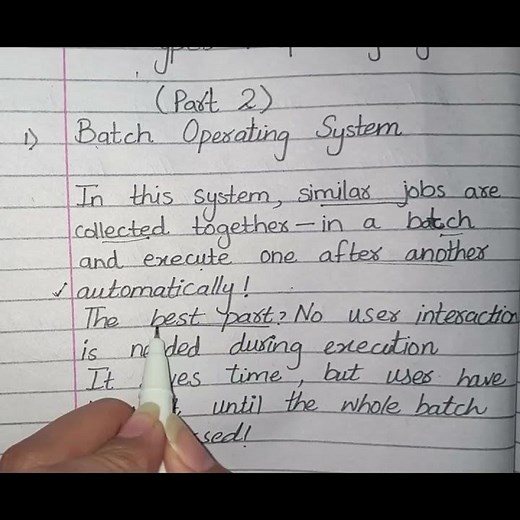 (Part 2)
1) Batch Operating System
In this system, similar jobs are
collected together - in a batch
and execute one after another
✓ automatically!
The best part? No user interaction
is needed during execution
It time, but user have
until the whole batch